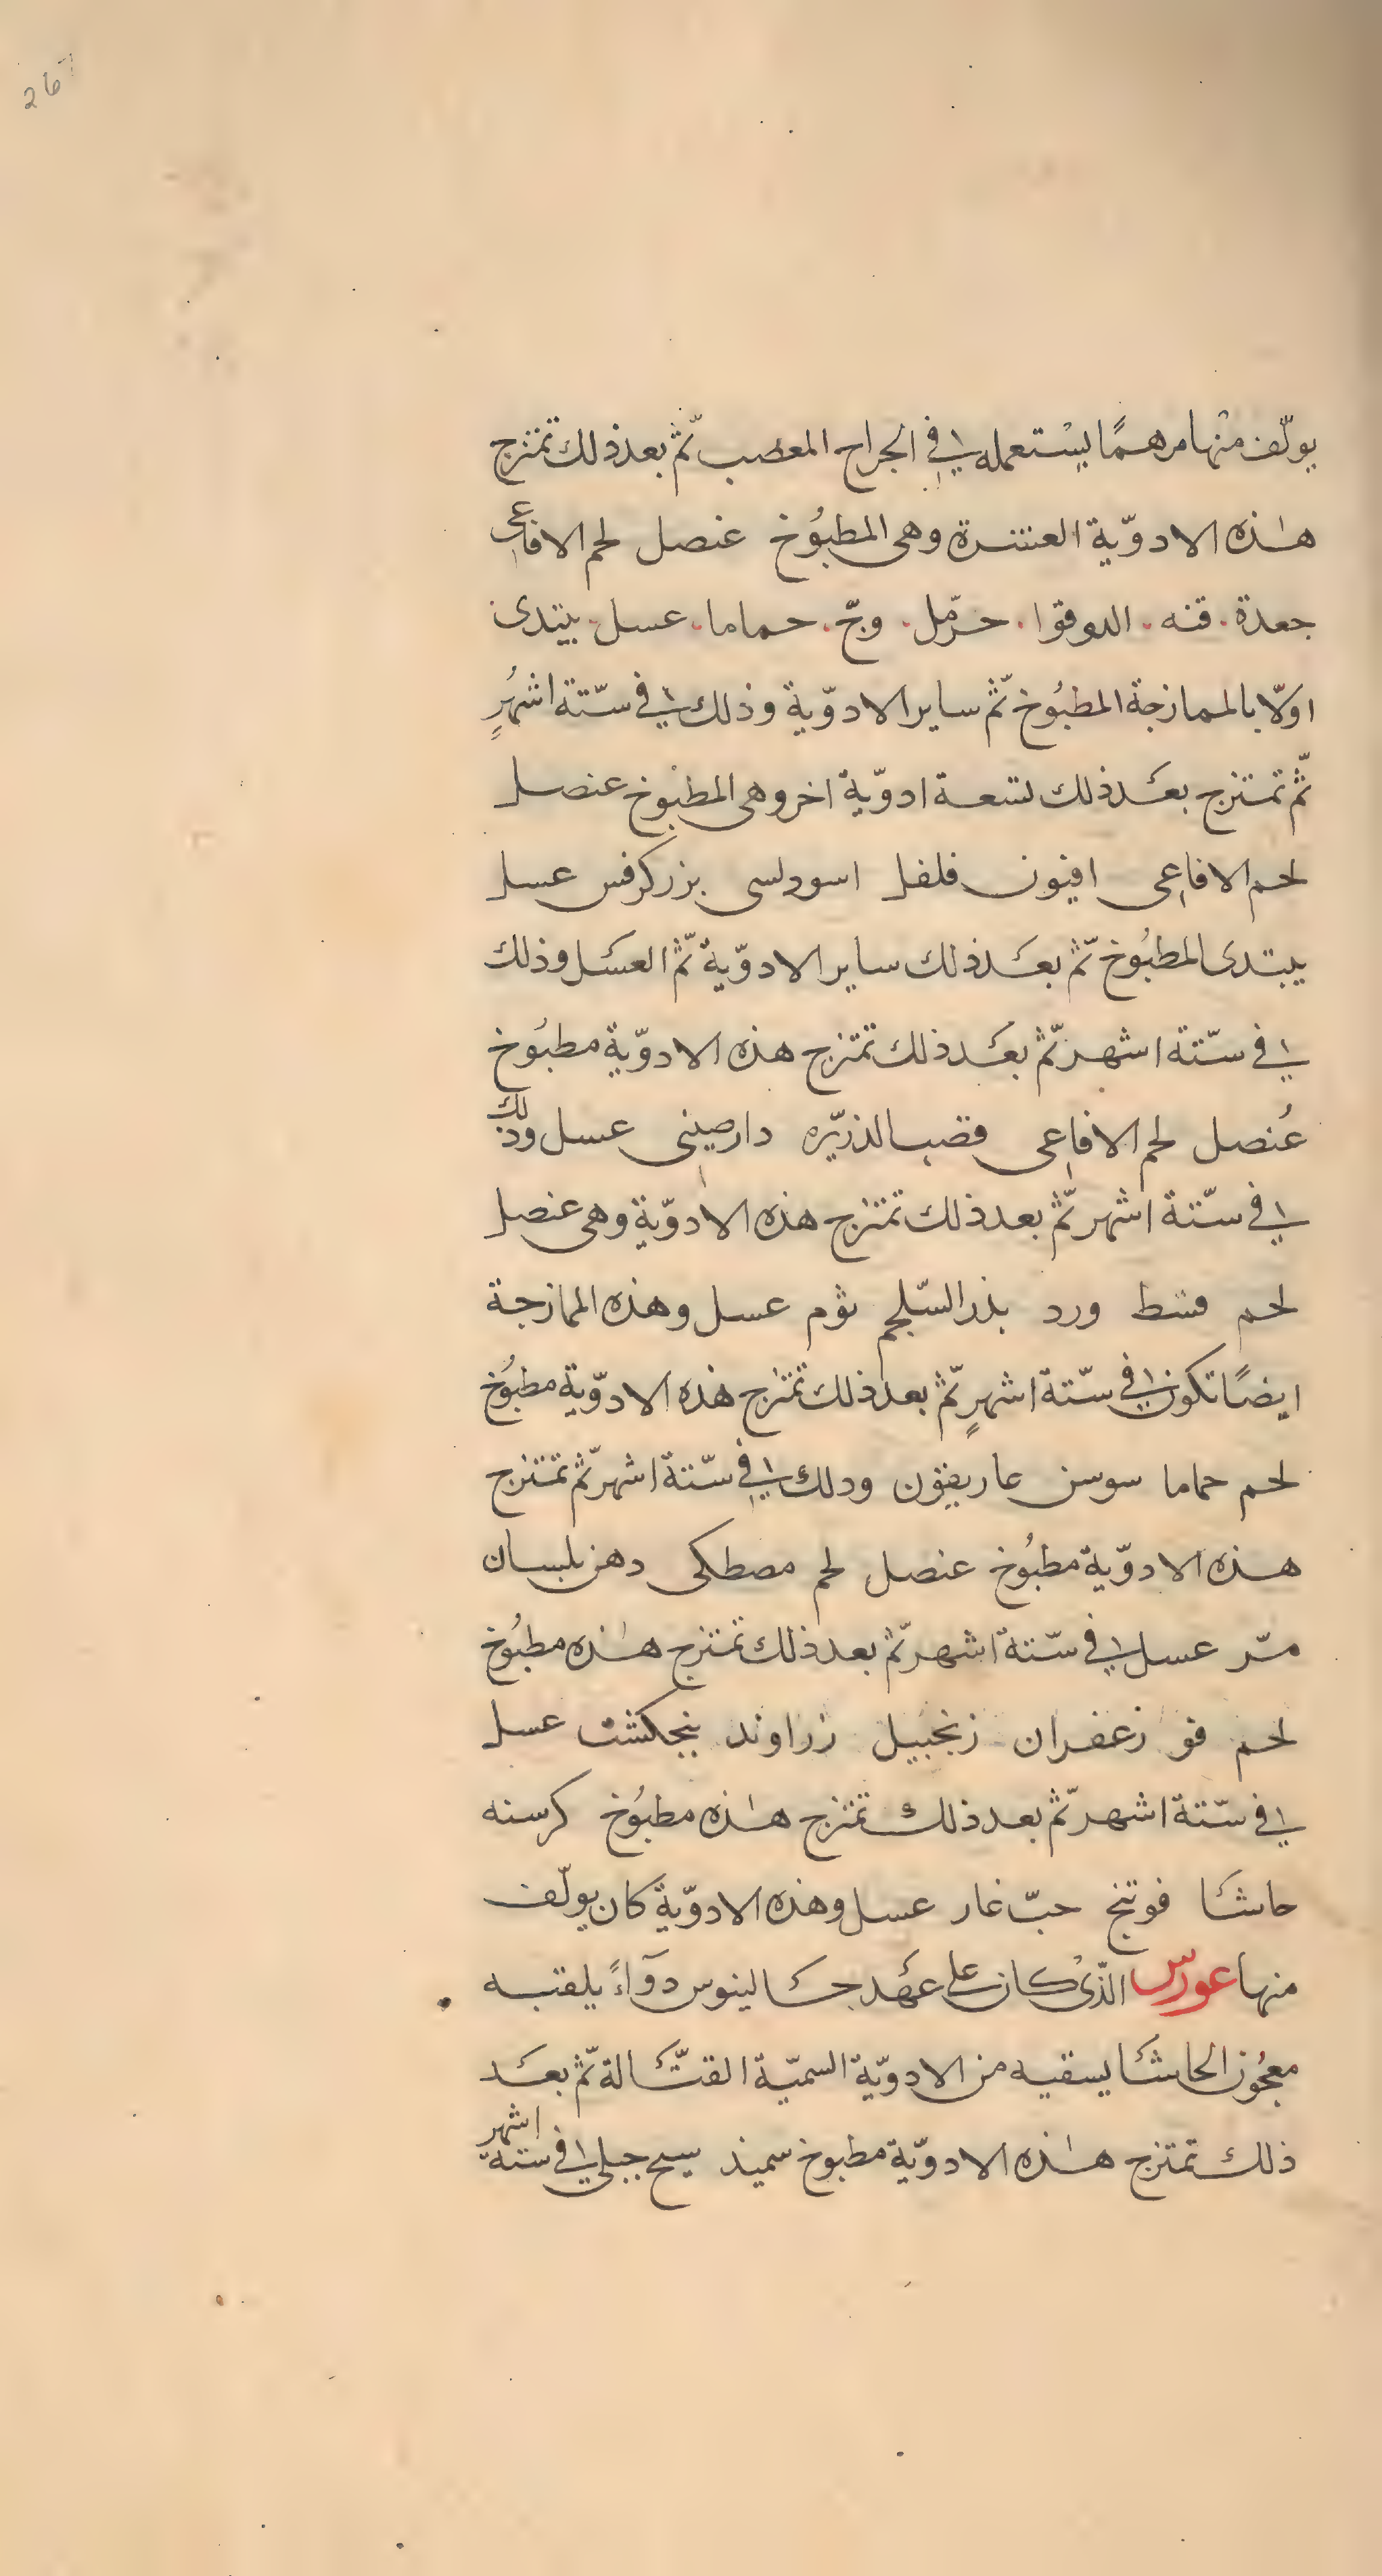 26
يولّف منها مرهمًا يستعمله في الجراح المعصب ثمّ بعد ذلك تمتزج
هذه الادوّية العشرة وهى المطبُوخ عنصل لحم الافاعى
جعدة . قنه . الدوقوا . حرّمل . وجّ . حماما . عسل . يبتدى
اوّلا بالممازجة المطبُوخ ثمّ ساير الادوّية وذلك في ستّة اشهُرٍ
ثمّ تمتزج بعد ذلك تسعة ادوّية اخر وهى المطبُوخ عنصل
لحم الافاعى افيون فلفل اسود لسى بزر كرفس عسل
يبتدى المطبُوخ ثمّ بعد ذلك ساير الادوّية ثمّ العسل وذلك
في ستّة اشهر ثمّ بعد ذلك تمتزج هذه الادوّية مطبُوخ
عُنصل لحم الافاعى قصب الذريّره دارصينى عسل وذلك
في ستّة اشهر ثمّ بعد ذلك تمتزج هذه الادوّية وهى عنصل
لحم قسط ورد بذر السّلجم ثوم عسل وهذه الممازجة
ايضًا تكون في ستّة اشهرٍ ثمّ بعد ذلك تمتزج هذه الادوّية مطبُوخ
لحم حماما سوسن عاريقون ودلك في ستّة اشهر ثمّ تمتزج
هذه الادوّية مطبُوخ عنصل لحم مصطكى دهن بلسان
مرّ عسل في ستّة اشهر ثمّ بعد ذلك تمتزج هذه مطبُوخ
لحم فو زعفران زنجبيل زراوند بنجكشت عسل
في ستّة اشهر ثمّ بعد ذلك تمتزج هذه مطبُوخ كرسنه
حاشا فوتنج حبّ غار عسل وهذه الادوّية كان يولّف
منها عورس الذّى كان على عهد جالينوس دوآءً يلقبه
معجُون الحاشا يسقيه من الادوّية السميّة القتّالة ثمّ بعد
ذلك تمتزج هذه الادوّية مطبوخ سميذ سيح جبلى في ستة اشهر